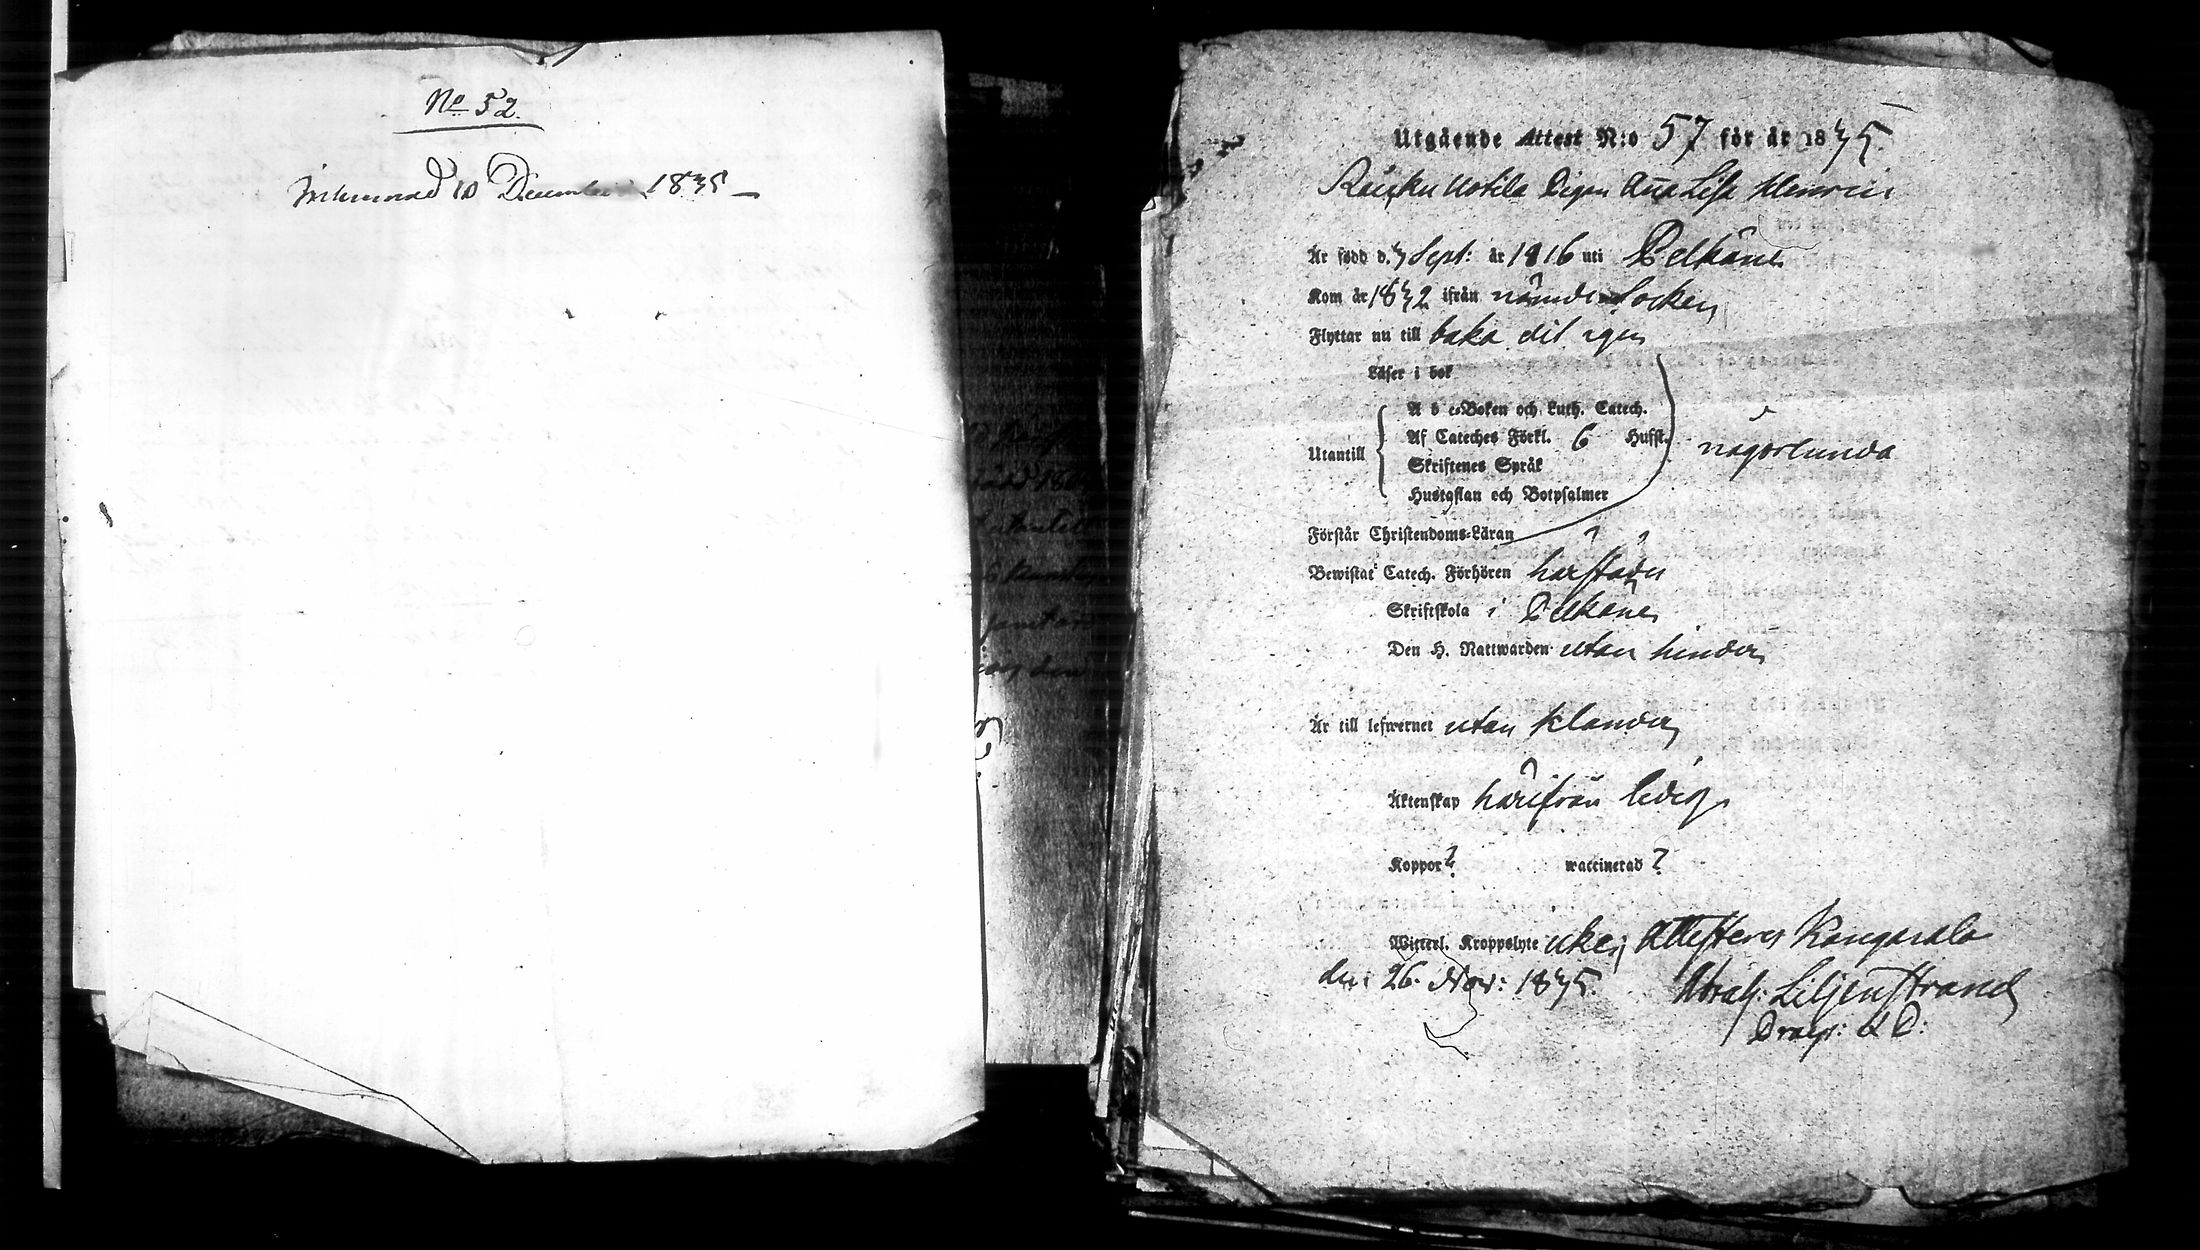 No 52.
Inlemnad 10 December 1835 —
Utgående Attest N:o 57 för år 1835.
Räikku Uotila Pigan Anna Lisa Henrici
Är född d. 3 Sept: år 1816 uti Pelkäne
Kom år 1832 ifrån nämnde Socken
Flyttar nu till baka dit igen
Läser i bok
A b c-Boken och Luth. Catech.
Af Cateches Förkl. 6 Hufst. någorlunda
Utantill
Skriftenes Språk
Hustaflan och Botpsalmer
Förstår Christendoms-Läran
Bewistat Catech. Förhören härstädes
Skriftskola i Pelkäne
Den H. Nattwarden utan hinder
Är till lefwernet utan klander
Äktenskap härifrån ledig
Koppor ? waccinerad ?
Witterl. Kroppslyte icke; Attesteras Kangasala
den 26. Nov: 1835. Abrah: Liljenstrand